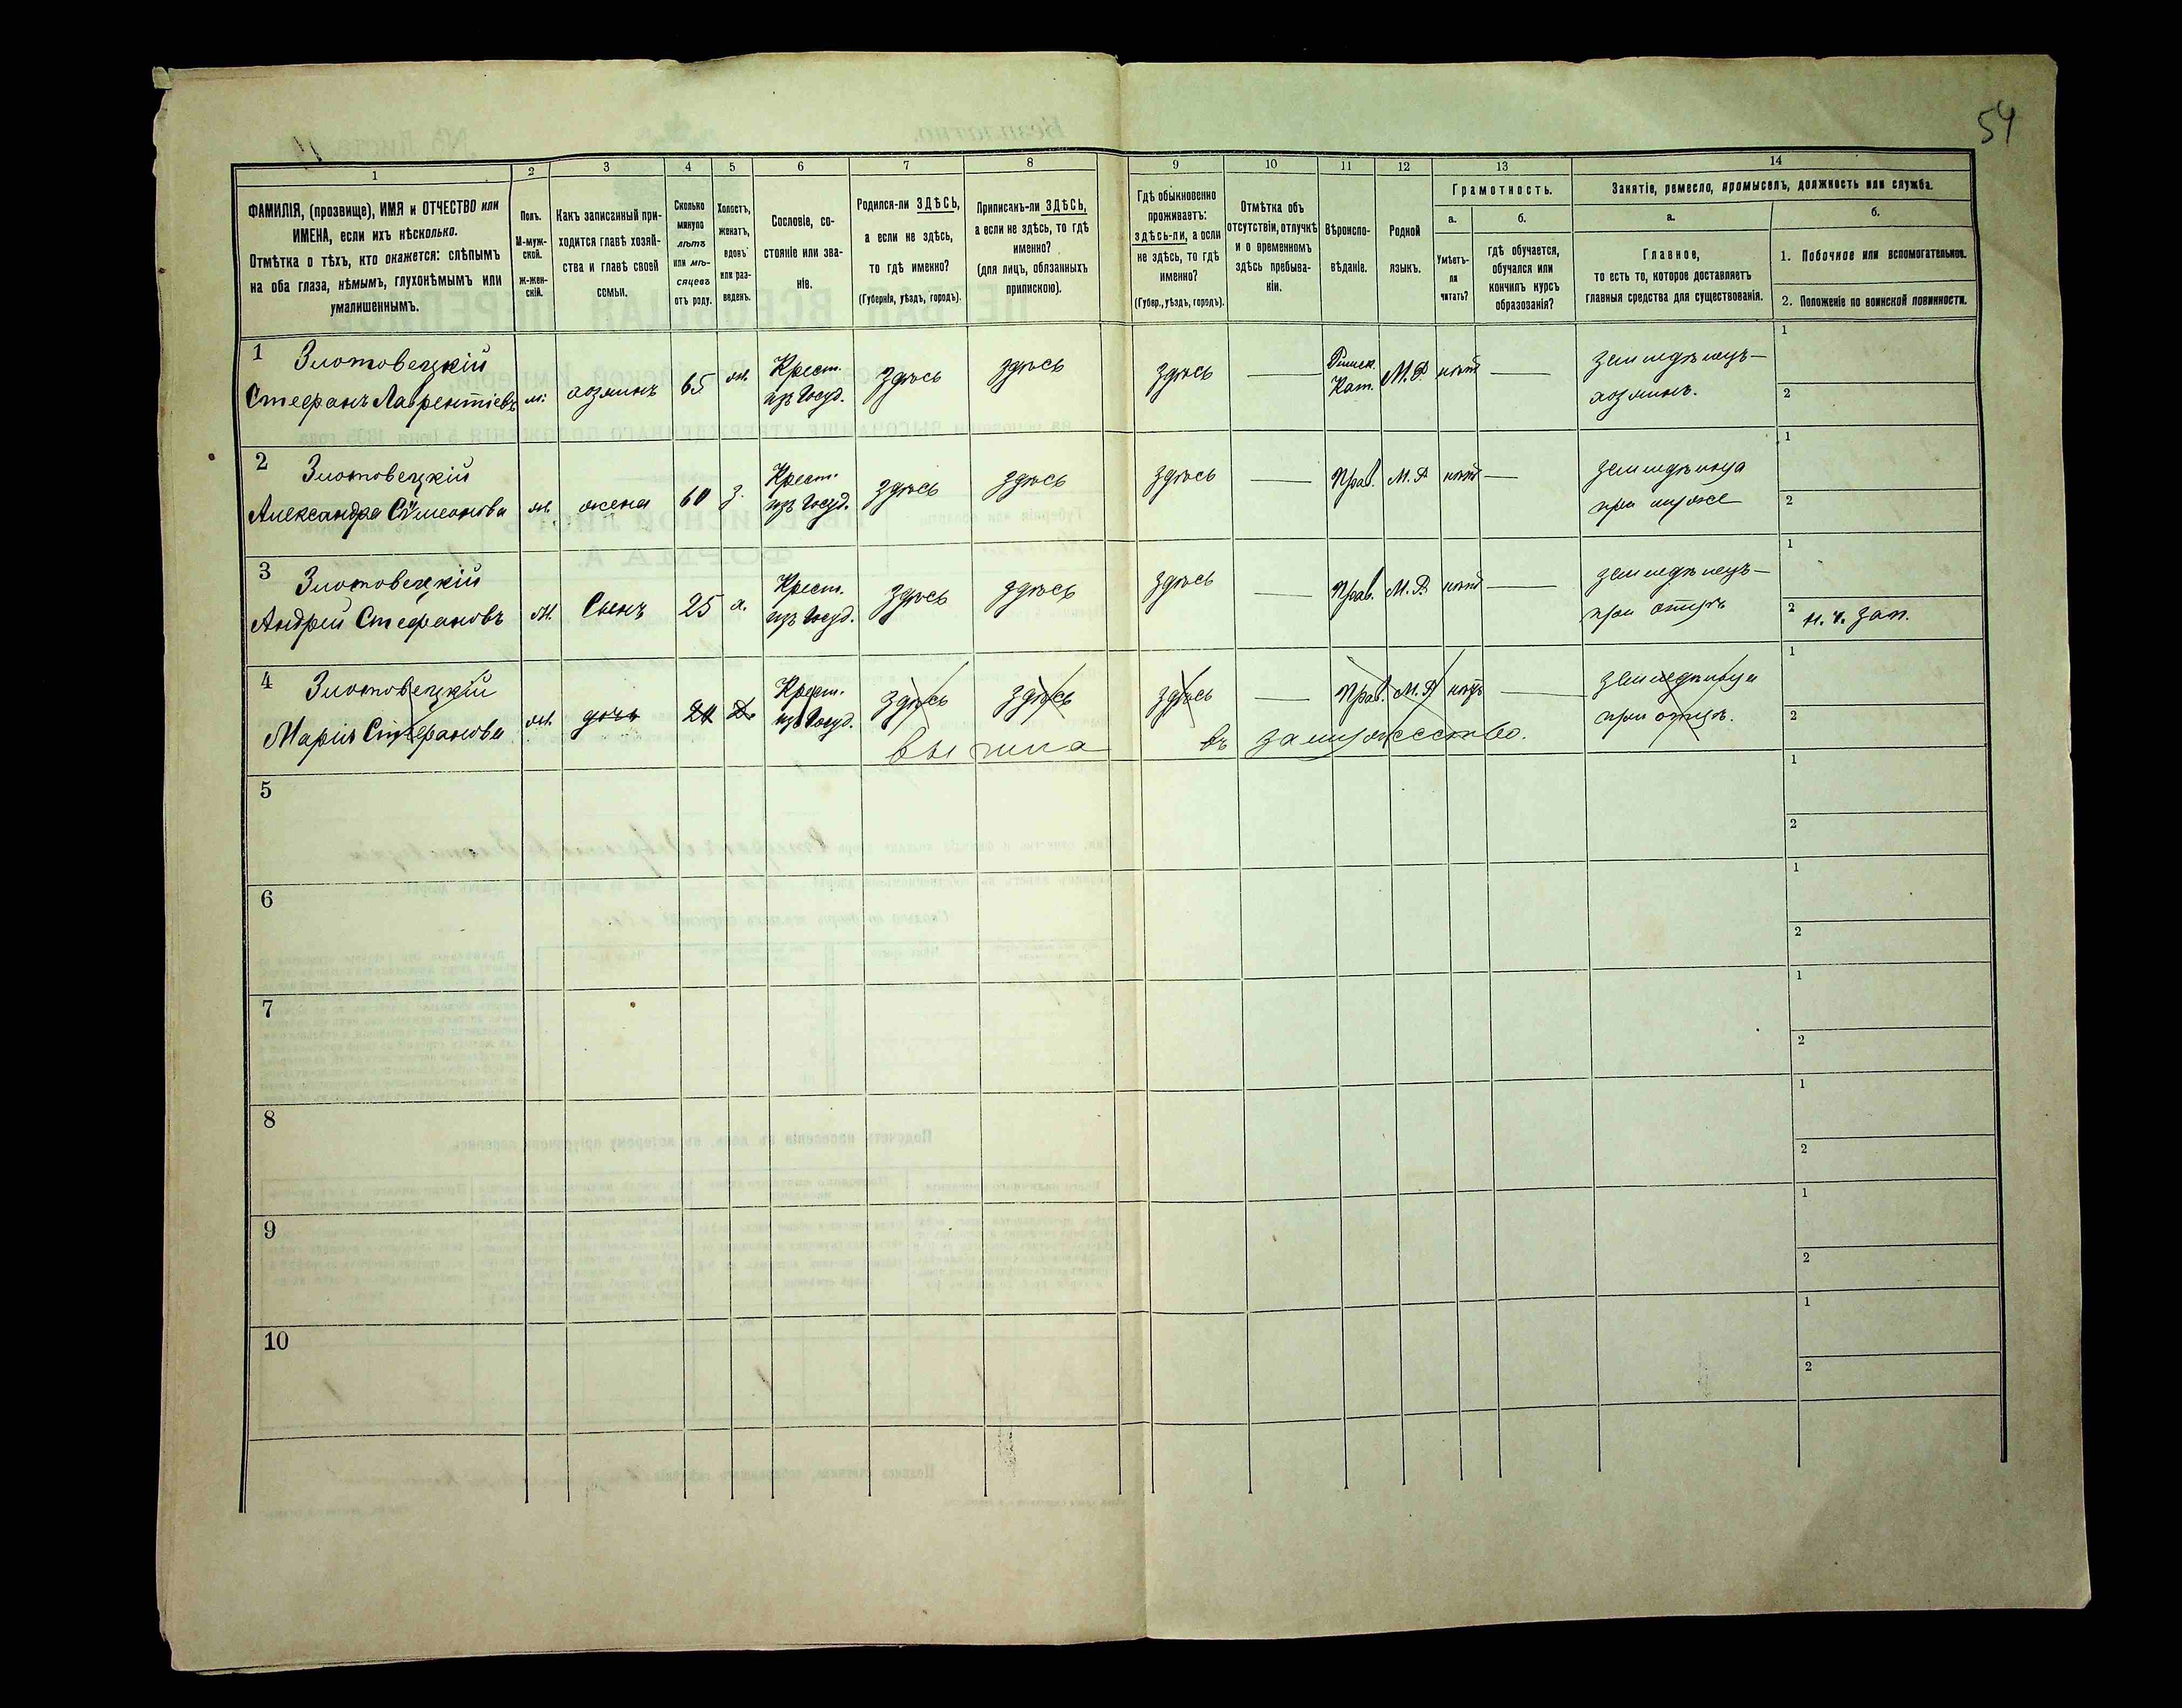 54
1 2 3 4 5 6 7 8 9 10 11 12 13 14
ФАМИЛІЯ, (прозвище), ИМЯ и ОТЧЕСТВО или
ИМЕНА, если ихъ нѣсколько.
Отмѣтка о тѣхъ, кто окажется: слѣпымъ
на оба глаза, нѣмымъ, глухонѣмымъ или
умалишеннымъ.
Полъ.
М-муж-
ской.
ж-жен-
скій.
Какъ записанный при-
ходится главѣ хозяй-
ства и главѣ своей
семьи.
Сколько
минуло
лѣтъ
или мѣ-
сяцевъ
отъ роду.
Холостъ,
женатъ,
вдовъ
или раз-
веденъ.
Сословіе, со-
стояніе или зва-
ніе.
Родился-ли ЗДѢСЬ,
а если не здѣсь,
то гдѣ именно?
(Губернія, уѣздъ, городъ).
Приписанъ-ли ЗДѢСЬ,
а если не здѣсь, то гдѣ
именно?
(для лицъ, обязанныхъ
припискою).
Гдѣ обыкновенно
проживаетъ:
здѣсь-ли, а если
не здѣсь, то гдѣ
именно?
(Губер., уѣздъ, городъ).
Отмѣтка объ
отсутствіи, отлучкѣ
и о временномъ
здѣсь пребыва-
ніи.
Вѣроиспо-
вѣданіе.
Родной
языкъ.
Грамотность.
а.
Умѣетъ-
ли
читать?
б.
гдѣ обучается,
обучался или
кончилъ курсъ
образованія?
Занятіе, ремесло, промыселъ, должность или служба.
а.
Главное,
то есть то, которое доставляетъ
главныя средства для существованія.
б.
1. Побочное или вспомогательное.
2. Положеніе по воинской повинности.
1 Злотовецкій Крест. здѣсь здѣсь здѣсь — Римск. земледѣлецъ— 1
Стефанъ Лаврентіевъ м. хозяинъ 65 ж. изъ Госуд. Кат. М.Р. нѣтъ — хозяинъ. 2
2 Злотовецкій Крест. здѣсь здѣсь здѣсь — Прав. М.Р. нѣтъ — земледѣлица 1
Александра Симеонова ж. жена 60 з. изъ Госуд. при муже 2
3 Злотовецкій Крест. здѣсь здѣсь здѣсь — Прав. М.Р. нѣтъ — земледѣлецъ— 1
Андрей Стефановъ м. Сынъ 25 х. изъ Госуд. при отцѣ 2 н. ч. зап.
4 Злотовецкій Крест. здѣсь здѣсь здѣсь — Прав. М.Р. нѣтъ — земледѣлица 1
Марія Стефанова ж. дочь изъ Госуд. при отцѣ. 2
вышла въ замужество.
5 1
2
6 1
2
7 1
2
8 1
2
9 1
2
10 1
2